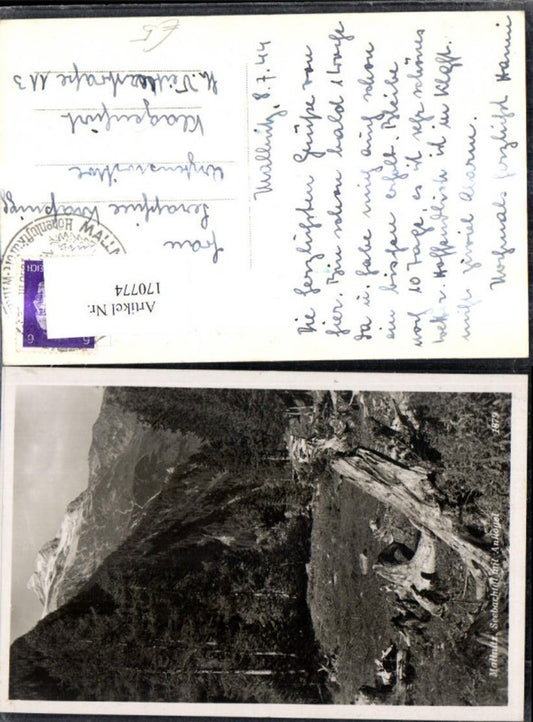 Mallnitz, 8.7.44
Die herzlichsten Grüße von
hier. Bin schon bald 1 Woche
da u. habe mich auch schon
ein bisschen erholt. Bleibe
noch 10 Tage es ist sehr schönes
Wetter. Hoffentlich ist in Klgft.
nicht zuviel Alarm.
Nochmals herzlichst Hanni
Frau
Seraphine
Klagenfurt
113
MALLN
REICH
6
6
Artikel Nr.
170774
£5
Mallnitz Seebachtal mit Ankogel 1879